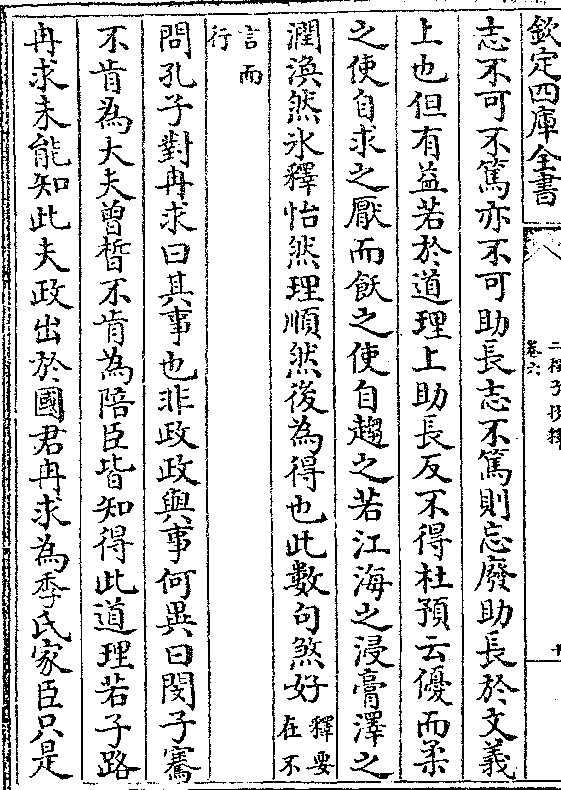 欽定四庫全書
二程子抄釋
卷六
志不可不篤亦不可助長志不篤則忘廢助長於文義
上也但有益若於道理上助長反不得杜預云優而柔
之使自求之厭而飫之使自趨之若江海之浸膏澤之
潤渙然氷釋怡然理順然後為得也此數句煞好釋要在不
言而行
問孔子對冉求曰其事也非政政與事何異曰閔子騫
不肯為大夫曾晳不肯為陪臣皆知得此道理若子路
冉求未能知此夫政出於國君冉求為季氏家臣只是